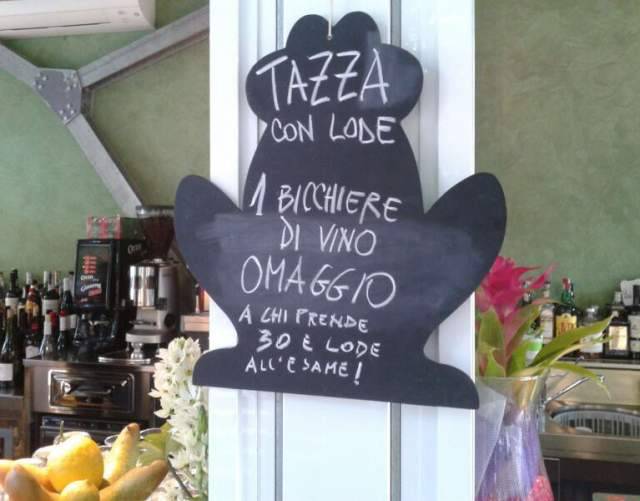 TAZZA
CON LODE
1 BICCHIERE
DI VINO
OMAGGIO
A CHI PRENDE
30 E LODE
ALL'ESAME!